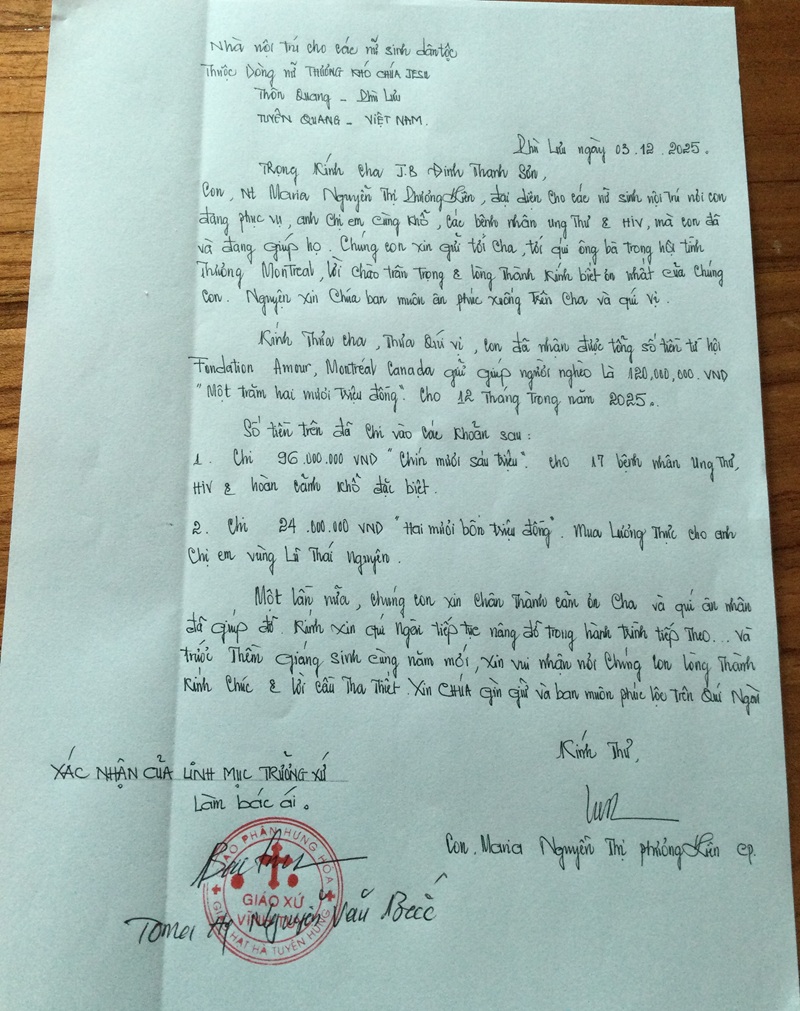 Nhà nội trú cho các nữ sinh dân tộc
Thuộc Dòng nữ THƯƠNG KHÓ CHÚA JESU
Thôn Quang - Phù Lưu
TUYÊN QUANG - VIỆT NAM.
Phù Lưu ngày 03.12.2025.
Trọng Kính Cha J.B Đinh Thanh Sơn,
Con, Nt Maria Nguyễn Thị Phương Hiên, đại diện cho các nữ sinh nội trú nơi con
đang phục vụ, anh chị em cùng khổ, các bệnh nhân ung Thư & HIV, mà con đã
và đang giúp họ. Chúng con xin gửi tới Cha, tới quí ông bà trong hội tình
Thương Montreal, lời chào trân trọng & lòng Thành Kính biết ơn nhất của Chúng
Con. Nguyện xin Chúa ban muôn ân phúc xuống Trên Cha và quí vị.
Kính Thưa cha, Thưa Quí vị, con đã nhận được tổng số tiền từ hội
Fondation Amour, Montréal Canada gửi giúp người nghèo là 120,000,000.VND
"Một trăm hai mươi triệu đồng". Cho 12 Tháng Trong năm 2025.
Số tiền trên đã Chi vào các khoản sau:
1. Chi 96.000.000 VND "Chín mươi sáu triệu". cho 17 bệnh nhân Ung Thư,
HIV & hoàn cảnh khổ đặc biệt.
2. Chi 24.000.000 VND "Hai mươi bốn triệu đồng". Mua Lương Thực cho anh
Chị em vùng Lũ Thái Nguyên.
Một lần nữa, chúng con xin Chân Thành cảm ơn Cha và quí ân nhân
đã giúp đỡ. Kính xin quí Ngài tiếp tục nâng đỡ trong hành trình tiếp Theo... và
trước Thềm Giáng sinh cùng năm mới, xin vui nhận nơi Chúng Con lòng Thành
Kính Chúc & lời cầu Tha Thiết. Xin CHÚA gìn giữ và ban muôn phúc lộc trên Quí Ngài
Kính Thư,
XÁC NHẬN CỦA LINH MỤC TRƯỞNG XỨ
Làm bác ái.
Con. Maria Nguyễn Thị Phương Hiên cp.
GIÁO PHẬN HƯNG HÓA
GIÁO XỨ
GIÁO HẠT HÀ TUYÊN HÙNG
Nguyễn Văn